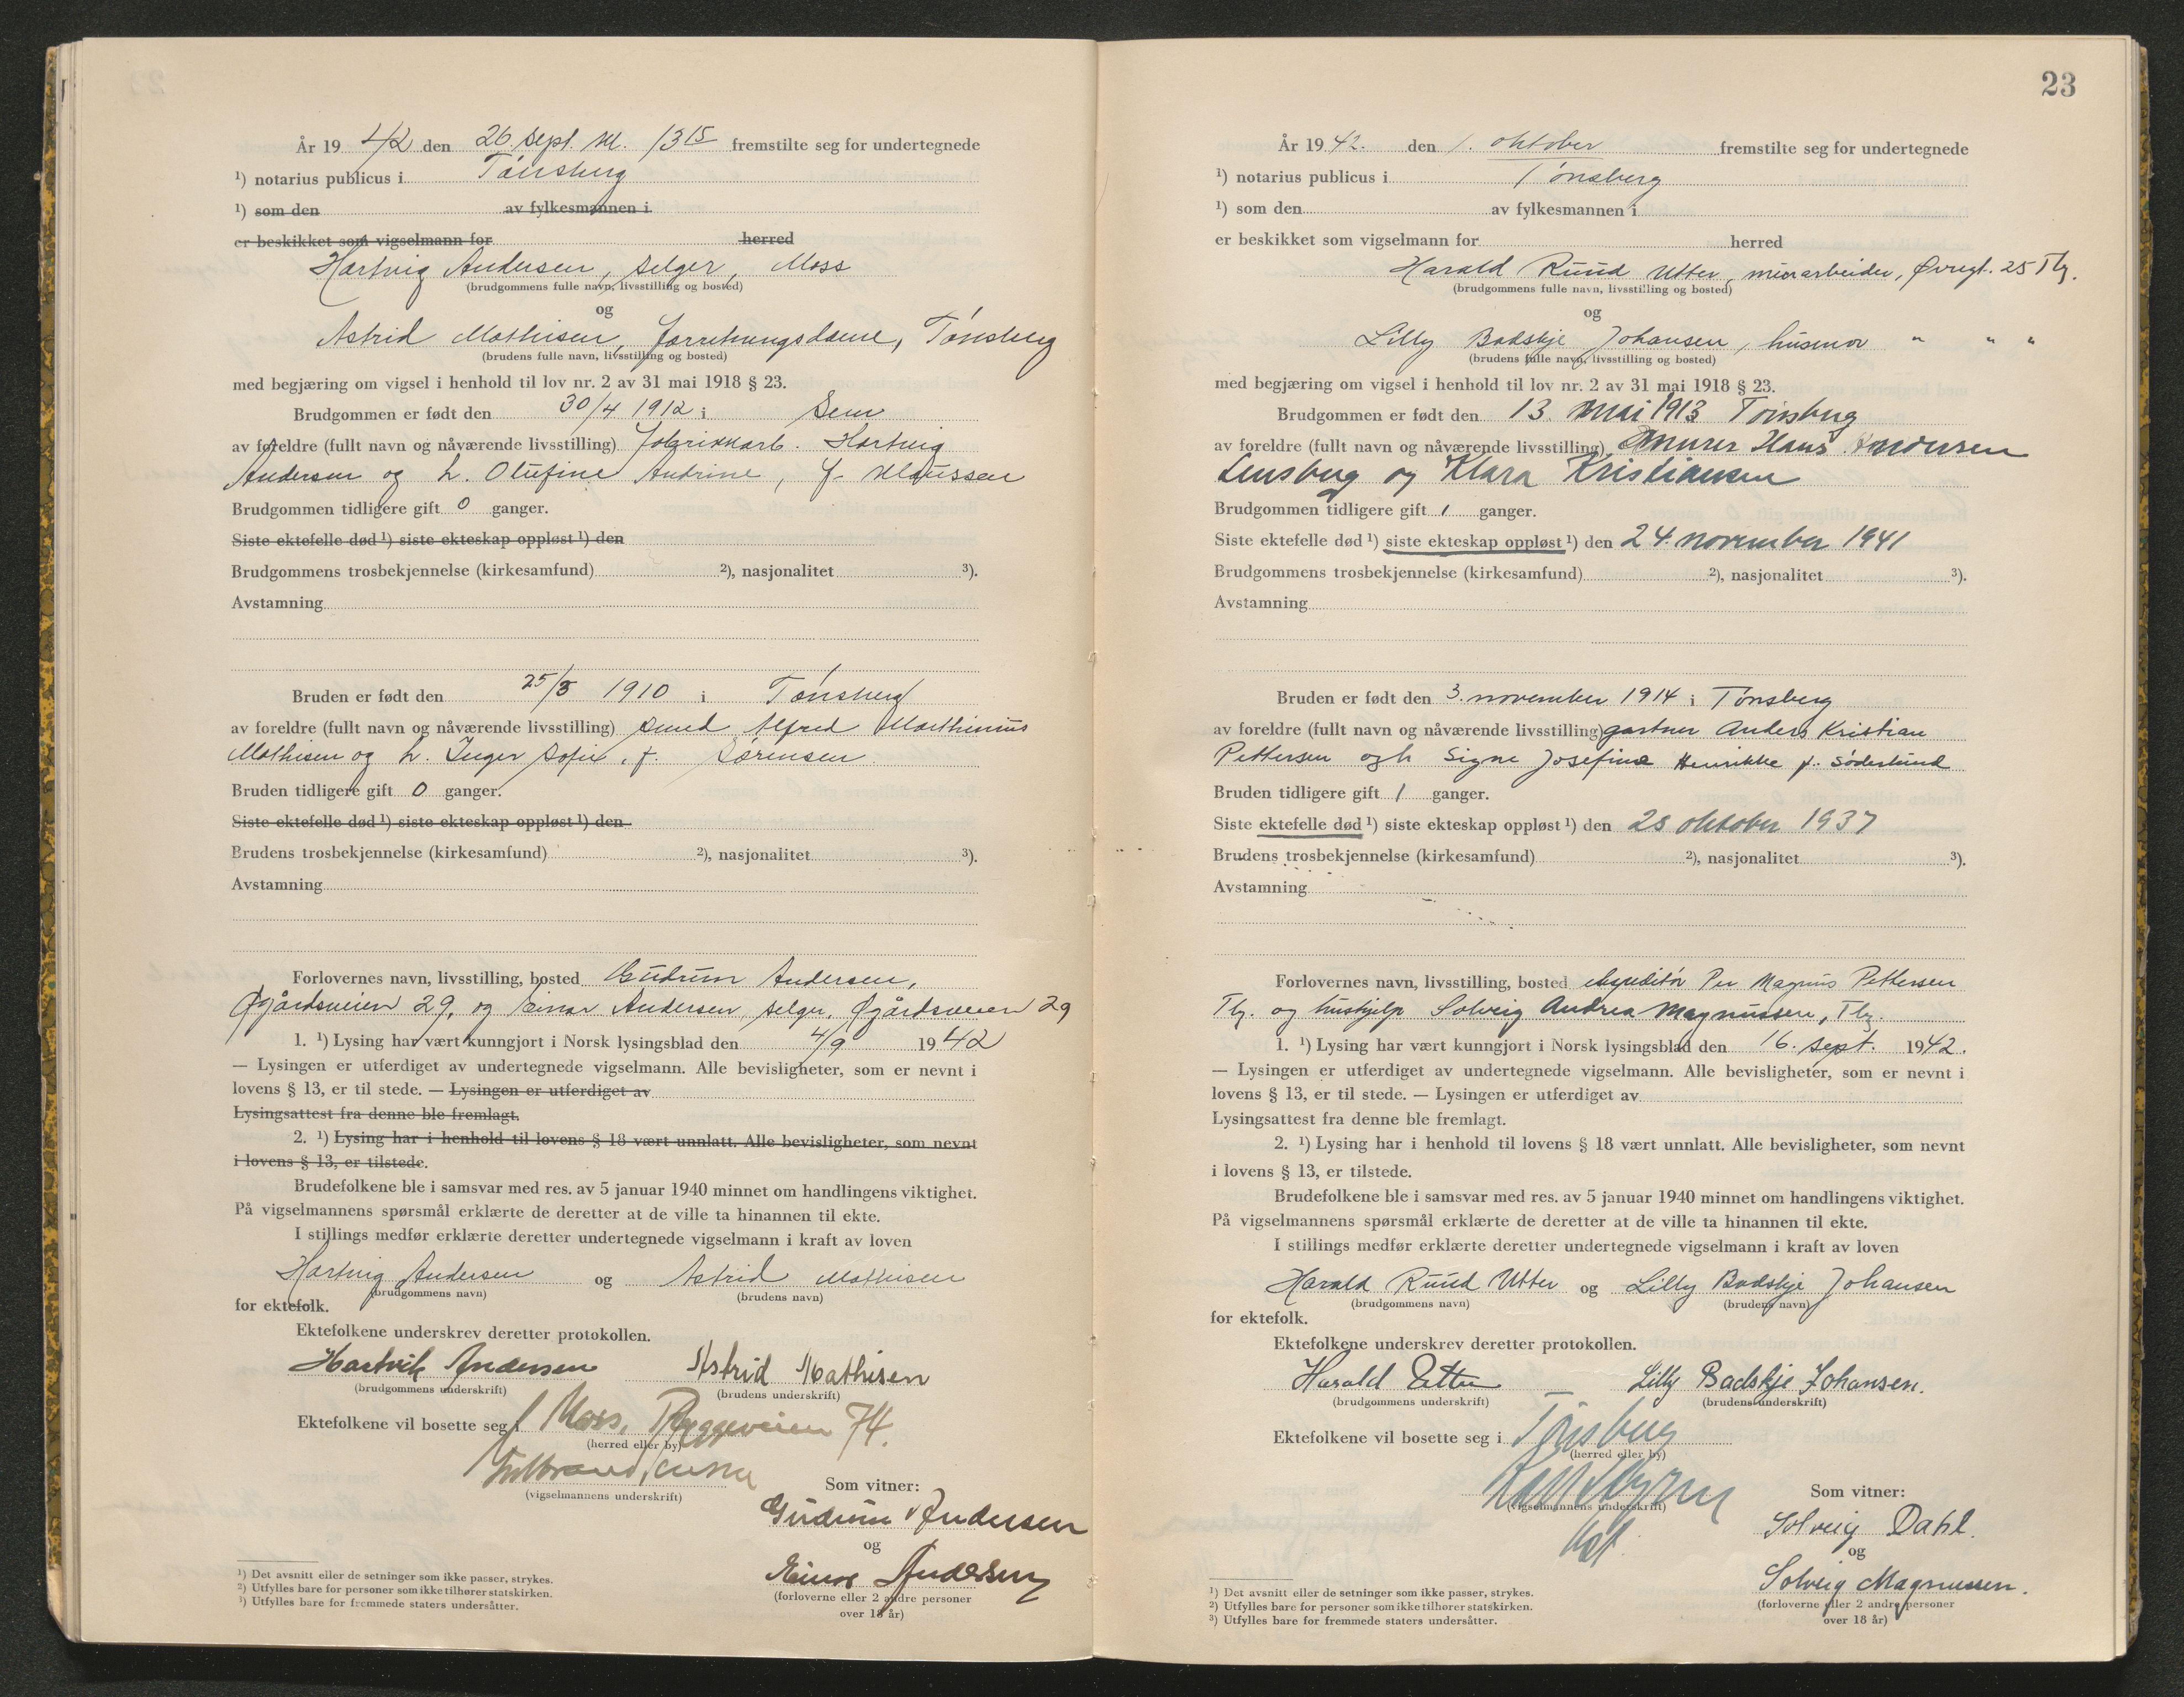 År 1942 den 26. sept. kl. 13 15 fremstilte seg for undertegnede
¹) notarius publicus i Tønsberg
¹) som den av fylkesmannen i
er beskikket som vigselmann for herred
Hartvig Andersen, selger, Moss
(brudgommens fulle navn, livsstilling og bosted)
og
Astrid Mathisen, forretningsdame, Tønsberg
(brudens fulle navn, livsstilling og bosted)
med begjæring om vigsel i henhold til lov nr. 2 av 31 mai 1918 § 23.
Brudgommen er født den 30/4 1912 i Sem
av foreldre (fullt navn og nåværende livsstilling) fabrikkarb. Hartvig
Andersen og h. Olufine Antrine, f. Klaussen
Brudgommen tidligere gift 0 ganger.
Siste ektefelle død ¹) siste ekteskap oppløst ¹) den
Brudgommens trosbekjennelse (kirkesamfund) ²), nasjonalitet ³).
Avstamning
Bruden er født den 25/3 1910 i Tønsberg
av foreldre (fullt navn og nåværende livsstilling) smed Alfred Marthinius
Mathisen og h. Inger Sofie, f. Sørensen
Bruden tidligere gift 0 ganger.
Siste ektefelle død ¹) siste ekteskap oppløst ¹) den
Brudens trosbekjennelse (kirkesamfund) ²), nasjonalitet ³).
Avstamning
Forlovernes navn, livsstilling, bosted Gudrun Andersen,
Øgårdsveien 29, og Einar Andersen, selger, Øgårdsveien 29
1. ¹) Lysing har vært kunngjort i Norsk lysingsblad den 4/9 1942
— Lysingen er utferdiget av undertegnede vigselmann. Alle bevisligheter, som er nevnt i
lovens § 13, er til stede. — Lysingen er utferdiget av
Lysingsattest fra denne ble fremlagt.
2. ¹) Lysing har i henhold til lovens § 18 vært unnlatt. Alle bevisligheter, som nevnt
i lovens § 13, er tilstede.
Brudefolkene ble i samsvar med res. av 5 januar 1940 minnet om handlingens viktighet.
På vigselmannens spørsmål erklærte de deretter at de ville ta hinannen til ekte.
I stillings medfør erklærte deretter undertegnede vigselmann i kraft av loven
Hartvig Andersen og Astrid Mathisen
(brudgommens navn) (brudens navn)
for ektefolk.
Ektefolkene underskrev deretter protokollen.
Hartvik Andersen Astrid Mathisen
(brudgommens underskrift) (brudens underskrift)
Ektefolkene vil bosette seg i Moss, Ryggeveien 74.
(herred eller by)
(vigselmannens underskrift)
Som vitner:
Gudrun Andersen
og
Einar Andersen
(forloverne eller 2 andre personer
over 18 år)
¹) Det avsnitt eller de setninger som ikke passer, strykes.
²) Utfylles bare for personer som ikke tilhører statskirken.
³) Utfylles bare for fremmede staters undersåtter.
23
År 1942. den 1. oktober fremstilte seg for undertegnede
¹) notarius publicus i Tønsberg
¹) som den av fylkesmannen i
er beskikket som vigselmann for herred
Harald Ruud Utter, murarbeider, Øvregt. 25 Tbg.
(brudgommens fulle navn, livsstilling og bosted)
og
Lilly Badskje Johansen, husmor " " "
(brudens fulle navn, livsstilling og bosted)
med begjæring om vigsel i henhold til lov nr. 2 av 31 mai 1918 § 23.
Brudgommen er født den 13. mai 1913 Tønsberg
av foreldre (fullt navn og nåværende livsstilling) murer Hans Andersen
Lensberg og Klara Kristiansen
Brudgommen tidligere gift 1 ganger.
Siste ektefelle død ¹) siste ekteskap oppløst ¹) den 24. november 1941
Brudgommens trosbekjennelse (kirkesamfund) ²), nasjonalitet ³).
Avstamning
Bruden er født den 3. november 1914 i Tønsberg
av foreldre (fullt navn og nåværende livsstilling) gartner Anders Kristian
Pettersen og h Signe Josefine Henrikke f. Søderlund
Bruden tidligere gift 1 ganger.
Siste ektefelle død ¹) siste ekteskap oppløst ¹) den 28 oktober 1937
Brudens trosbekjennelse (kirkesamfund) ²), nasjonalitet ³).
Avstamning
Forlovernes navn, livsstilling, bosted ekspeditør Per Magnus Pettersen
Tbg. og hushjelp Solveig Andrea Magnussen, Tbg.
1. ¹) Lysing har vært kunngjort i Norsk lysingsblad den 16. sept. 1942.
— Lysingen er utferdiget av undertegnede vigselmann. Alle bevisligheter, som er nevnt i
lovens § 13, er til stede. — Lysingen er utferdiget av
Lysingsattest fra denne ble fremlagt.
2. ¹) Lysing har i henhold til lovens § 18 vært unnlatt. Alle bevisligheter, som nevnt
i lovens § 13, er tilstede.
Brudefolkene ble i samsvar med res. av 5 januar 1940 minnet om handlingens viktighet.
På vigselmannens spørsmål erklærte de deretter at de ville ta hinannen til ekte.
I stillings medfør erklærte deretter undertegnede vigselmann i kraft av loven
Harald Ruud Utter og Lilly Badskje Johansen
(brudgommens navn) (brudens navn)
for ektefolk.
Ektefolkene underskrev deretter protokollen.
Harald Utter Lilly Badskje Johansen.
(brudgommens underskrift) (brudens underskrift)
Ektefolkene vil bosette seg i Tønsberg
(herred eller by)
(vigselmannens underskrift)
Som vitner:
Solveig Dahl.
og
Solveig Magnussen.
(forloverne eller 2 andre personer
over 18 år)
¹) Det avsnitt eller de setninger som ikke passer, strykes.
²) Utfylles bare for personer som ikke tilhører statskirken.
³) Utfylles bare for fremmede staters undersåtter.